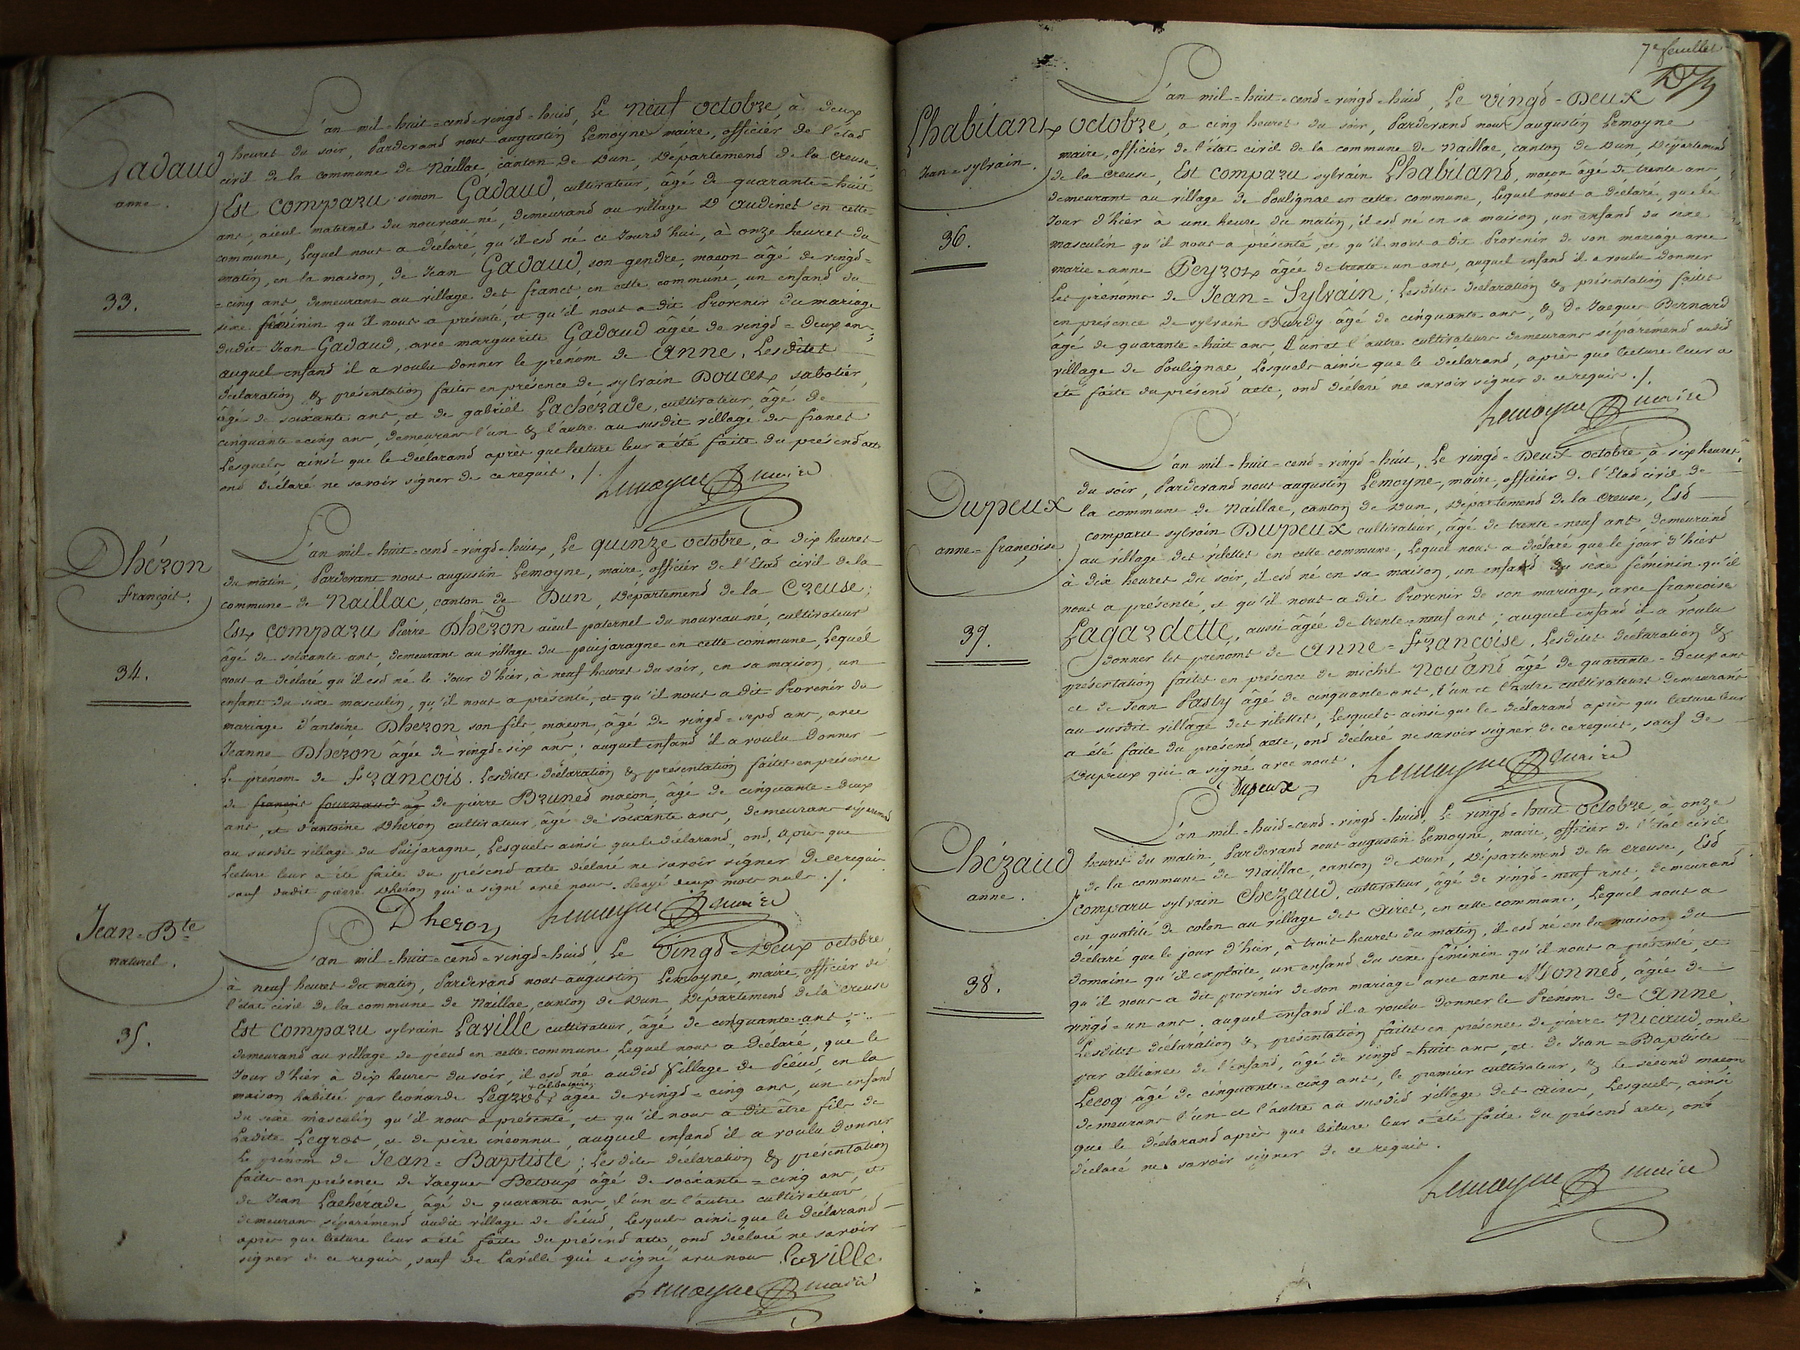 Gadaud
anne.
33.
L'an mil=huit=cend=vingd=huid, Le Neuf octobre, à deux
heures du soir, Pardevand nous augustin Lemoyne maire, officier de l'étad
civil de la commune de Naillac, canton de Dun, Départemend de la Creuse,
Est comparu simon Gadaud, cultivateur, âgé de quarante=huit
ans, aïeul maternel du nouveau né, demeurand au village D'Audinet en cette
commune, Lequel nous a déclaré, qu'il esd né ce Jourd'hui, à onze heures du
matin, en la maison, de Jean Gadaud, son gendre, maçon âgé de vingd=
=cinq ans, demeurans au village des francs, en cette commune, un enfand du
sèxe féminin qu'il nous a présenté, et qu'il nous a dit Provenir du mariage
dudit Jean Gadaud, avec marguerite Gadaud âgée de vingd=deux ans;
auquel enfand il a voulu donner le prénom de Anne. Lesdites
déclaration & présentation faites en présence de sylvain Doucet, sabotier,
âgé de soixante ans, et de gabriel Lachézade, cultivateur, âgé de
cinquante=cinq ans, demeurans l'un & l'autre au susdit village des francs
Lesquels ainsi que le déclarand après que lecture leur a été faite du présend acte
ond déclaré ne savoir signer de ce requis ./.
Lemoyne maire
Dhézon
françois.
34.
L'an mil=huit=cend=vingd=huit, Le quinze octobre, à dix heures
du matin, Pardevant nous augustin Lemoyne, maire, officier de l'Etad civil de la
commune de Naillac, canton de Dun, Département de la Creuse;
Est comparu Pierre Dhézon aïeul paternel du nouveau né, cultivateur
âgé de soixante ans, demeurant au village du puijaragne en cette commune, Lequel
nous a déclaré qu'il esd né le Jour d'hier, à neuf heures du soir, en sa maison, un
enfant du sèxe masculin, qu'il nous a présenté, et qu'il nous a dit Provenir du
mariage d'antoine Dhezon, son fils, maçon, âgé de vingd=sepd ans, avec
Jeanne Dhezon âgée de vingd=six ans; auquel enfand il a voulu donner
Le prénom de François. Lesdites déclaration & présentation faites en présence
de françois fournaud ag de pierre Bruned maçon, âgé de cinquante=deux
ans, et d'antoine Dhéron cultivateur, âgé de soixante ans, demeurans séparémend
au susdit village du Puijaragne, Lesquels ainsi que le déclarand, ond, après que
Lecture leur a été faite du présend acte déclaré ne savoir signer de ce requis
sauf dudit pierre Dhéron qui a signé avec nous. Rayé deux mots nuls ./.
Dhezon Lemoyne maire
Jean=Bte
naturel.
35.
L'an mil=huit=cend=vingd=huid, Le Vingd=Deux octobre,
à neuf heures du matin, Pardevand nous augustin Lemoyne, maire, officier de
l'état civil de la commune de Naillac, canton de Dun, Département de la creuse
Est comparu sylvain Laville cultivateur, âgé de cinquante ans
demeurand au village de piéud en cette commune, Lequel nous a déclaré, que le
Jour d'hier à dix heures du soir, il esd né audid Village de Piéud, en la
maison habitée par léonarde Legros, âgée de vingd=cinq ans, un enfand
+célibataire,
du sèxe masculin qu'il nous a présenté, et qu'il nous a dit être fils de
Ladite Legros, et de père inconnu, auquel enfand il a voulu donner
Le prénom de Jean=Baptiste; Lesdites déclaration & présentation
faites en présence de Jacques Betoux âgé de soixante=cinq ans, et
de Jean Lachézade, âgé de quarante ans, l'un et l'autre cultivateurs
demeurans séparémend audit village de Piéud, Lesquels ainsi que le déclarand
après que lecture leur a été faite du présend acte ond déclaré ne savoir
signer de ce requis, sauf de Laville qui a signé avec nous Laville
Lemoyne maire
7e feuillet
Lhabitant
Jean=sylvain.
36.
L'an mil=huit=cend=vingd=huid, Le Vingd=Deux
octobre, à cinq heures du soir, Pardevand nous augustin Lemoyne
maire, officier de l'état civil de la commune de Naillac, canton de Dun, Département
de la Creuse, Est comparu sylvain Lhabitand, maçon âgé de trente ans,
demeurant au village de Poulignac en cette commune, Lequel nous a déclaré, que le
Jour d'hier à une heure du matin, il esd né en sa maison, un enfand du sexe
masculin qu'il nous a présenté, et qu'il nous a dit Provenir de son mariage avec
marie=anne Peyrot âgée de trente=un ans, auquel enfand il a voulu donner
Les prénoms de Jean=Sylvain; Lesdites déclaration & présentation faites
en présence de sylvain Burdy âgé de cinquante ans, & de Jacques Bernard
âgé de quarante=huit ans, l'un et l'autre cultivateurs demeurans séparémend audit
village de Poulignac, Lesquels ainsi que le déclarand, après que lecture leur a
été faite du présend acte, ond déclaré ne savoir signer de ce requis ./.
Lemoyne maire
Dupeux
anne=françoise
37.
L'an mil=huit=cend=vingd=huit, Le vingd=Deux octobre, à six heures
du soir, Pardevand nous augustin Lemoyne, maire, officier de l'Etad civil de
la commune de Naillac, canton de Dun, Département de la Creuse, Esd
comparu sylvain Dupeux cultivateur, âgé de trente=neuf ans demeurand
au village des vilettes en cette commune, Lequel nous a déclaré que le jour d'hier
à dix heures du soir, il esd né en sa maison, un enfand du sèxe féminin qu'il
nous a présenté, et qu'il nous a dit Provenir de son mariage, avec françoise
Lagardette, aussi âgée de trente=neuf ans; auquel enfand il a voulu
donner les prénoms de Anne=Françoise. Lesdites déclaration &
présentation faites en présence de michel Nouâné âgé de quarante=deux ans
et de Jean Pasty âgé de cinquante ans, l'un et l'autre cultivateurs demeurans
au susdit village des vilettes, Lesquels ainsi que le déclarand après que lecture leur
a été faite du présend acte, ond déclaré ne savoir signer de ce requis, sauf de
Dupeux qui a signé avec nous.
Dupeux Lemoyne maire
Chézaud
anne.
38.
L'an mil=huid=cend=vingd=huid, Le vingd=huit Octobre, à onze
heures du matin, Pardevand nous augustin Lemoyne, maire, officier de l'Etat civil
de la commune de Naillac, canton de Dun, Département de la Creuse, Esd
comparu sylvain Chézaud, cultivateur, âgé de vingd=neuf ans, demeurand
en qualité de colon au village des Aires, en cette commune, Lequel nous a
déclaré que le jour d'hier, à trois heures du matin, il esd né en la maison du
domaine qu'il exploite, un enfand du sèxe féminin qu'il nous a présenté, et
qu'il nous a dit provenir de son mariage avec anne Monned, âgée de
vingd=un ans, auquel enfand il a voulu donner le Prénom de Anne.
Lesdites déclaration & présentation faites en présence de pierre Nicaud, oncle
par alliance de l'enfand, âgé de vingd=huit ans, et de Jean=Baptiste
Lecoq âgé de cinquante=cinq ans, le premier cultivateur, & le second maçon
demeurans l'un et l'autre au susdid village des Aires, Lesquels, ainsi
que le déclarand après que lecture leur a été faite du présend acte, ond
déclaré ne savoir signer de ce requis.
Lemoyne maire